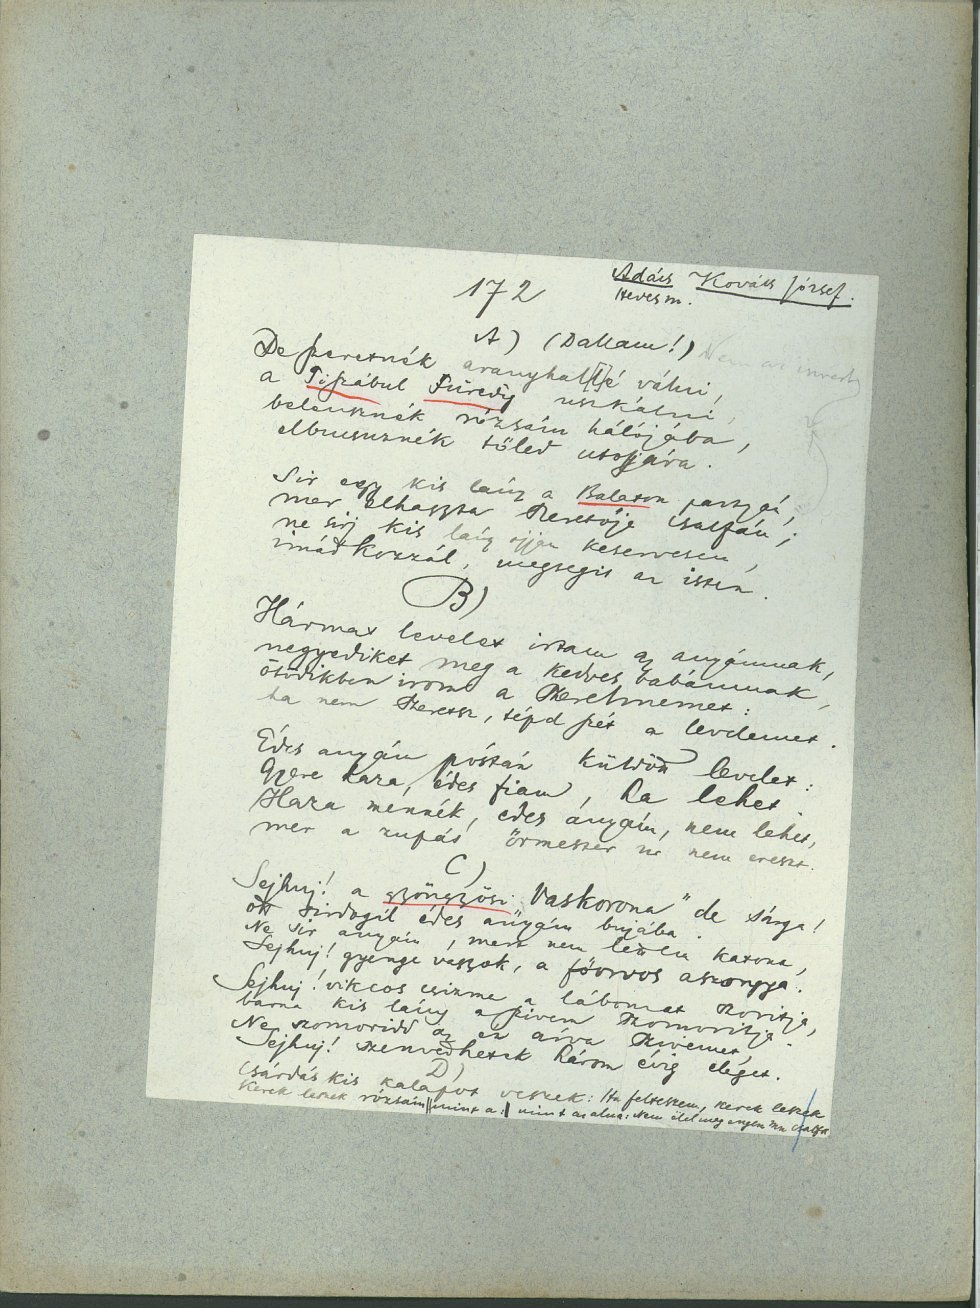 172
Adács Kovács József.
Heves m.
A) (Dallam!)
De szeretnék aranyhal(l)é váhni,
a Tiszábul Füredig uszkálni
beleusznék rózsám hálójába,
elbucsuznék tőled utojjára.
Sir egy kis laíny a Balaton parttyán,
mer elhaszta szeretője csalfán;
ne sirj kis laíny ojjan keservesen,
imádkozzál, megsegit az isten.
B)
Hármat levelet irtam az anyámnak,
negyediket meg a kedves babámnak,
ötödikben irom a szeretmemet:
ha nem szeretsz, tépd szét a levelemet.
Édes anyám póstán küldött levelet:
Gyere haza, édes fiam, ha lehet.
Haza mennék, édes anyám, nem lehet,
mer a zupás őrmester úr nem ereszt.
C)
Sejhuj! a gyöngyösi "Vaskorona" de sárga!
ott sirdogál édes anyám bujába.
Ne sir anyám, mert nem leszek katona,
Sejhuj! gyenge vagyok, a főorvos aszongya.
Sejhuj! vikcos csizma a lábomat szoritja,
barna kis laíny a szivem szomoritja.
Ne szomoridd az én árva szivemet,
Sejhuj! szenvedhetek három évig eleget.
D)
Csárdás kis kalapot veszek: Ha felteszem, kerek leszek
Kerek leszek rózsám || mint a: || mint az alma: Nem élel meg engem csalfa